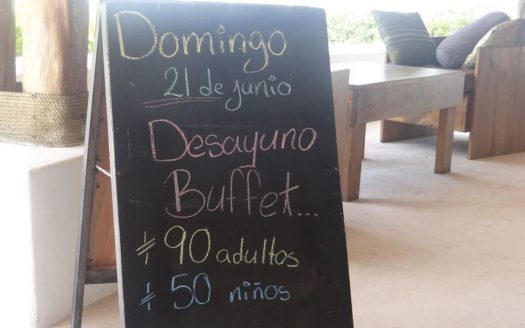 Domingo
21 de junio
Desayuno
Buffet...
$ 90 adultos
$ 50 niños